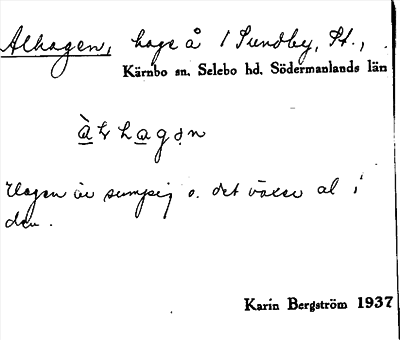 Alhagen, hage å 1 Sundby, St.,
Kärnbo sn. Selebo hd. Södermanlands län
àlhagən
Hagen är sumpig o. det växer al i
den.
Karin Bergström 1937